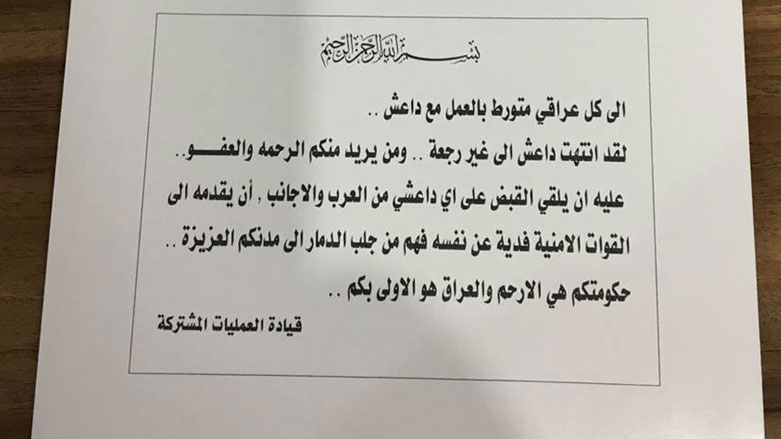 بسم الله الرحمن الرحيم
الى كل عراقي متورط بالعمل مع داعش ..
لقد انتهت داعش الى غير رجعة .. ومن يريد منكم الرحمه والعفـــو..
عليه ان يلقي القبض على اي داعشي من العرب والاجانب , أن يقدمه الى
القوات الامنية فدية عن نفسه فهم من جلب الدمار الى مدنكم العزيزة ..
حكومتكم هي الارحم والعراق هو الاولى بكم ..
قيادة العمليات المشتركة